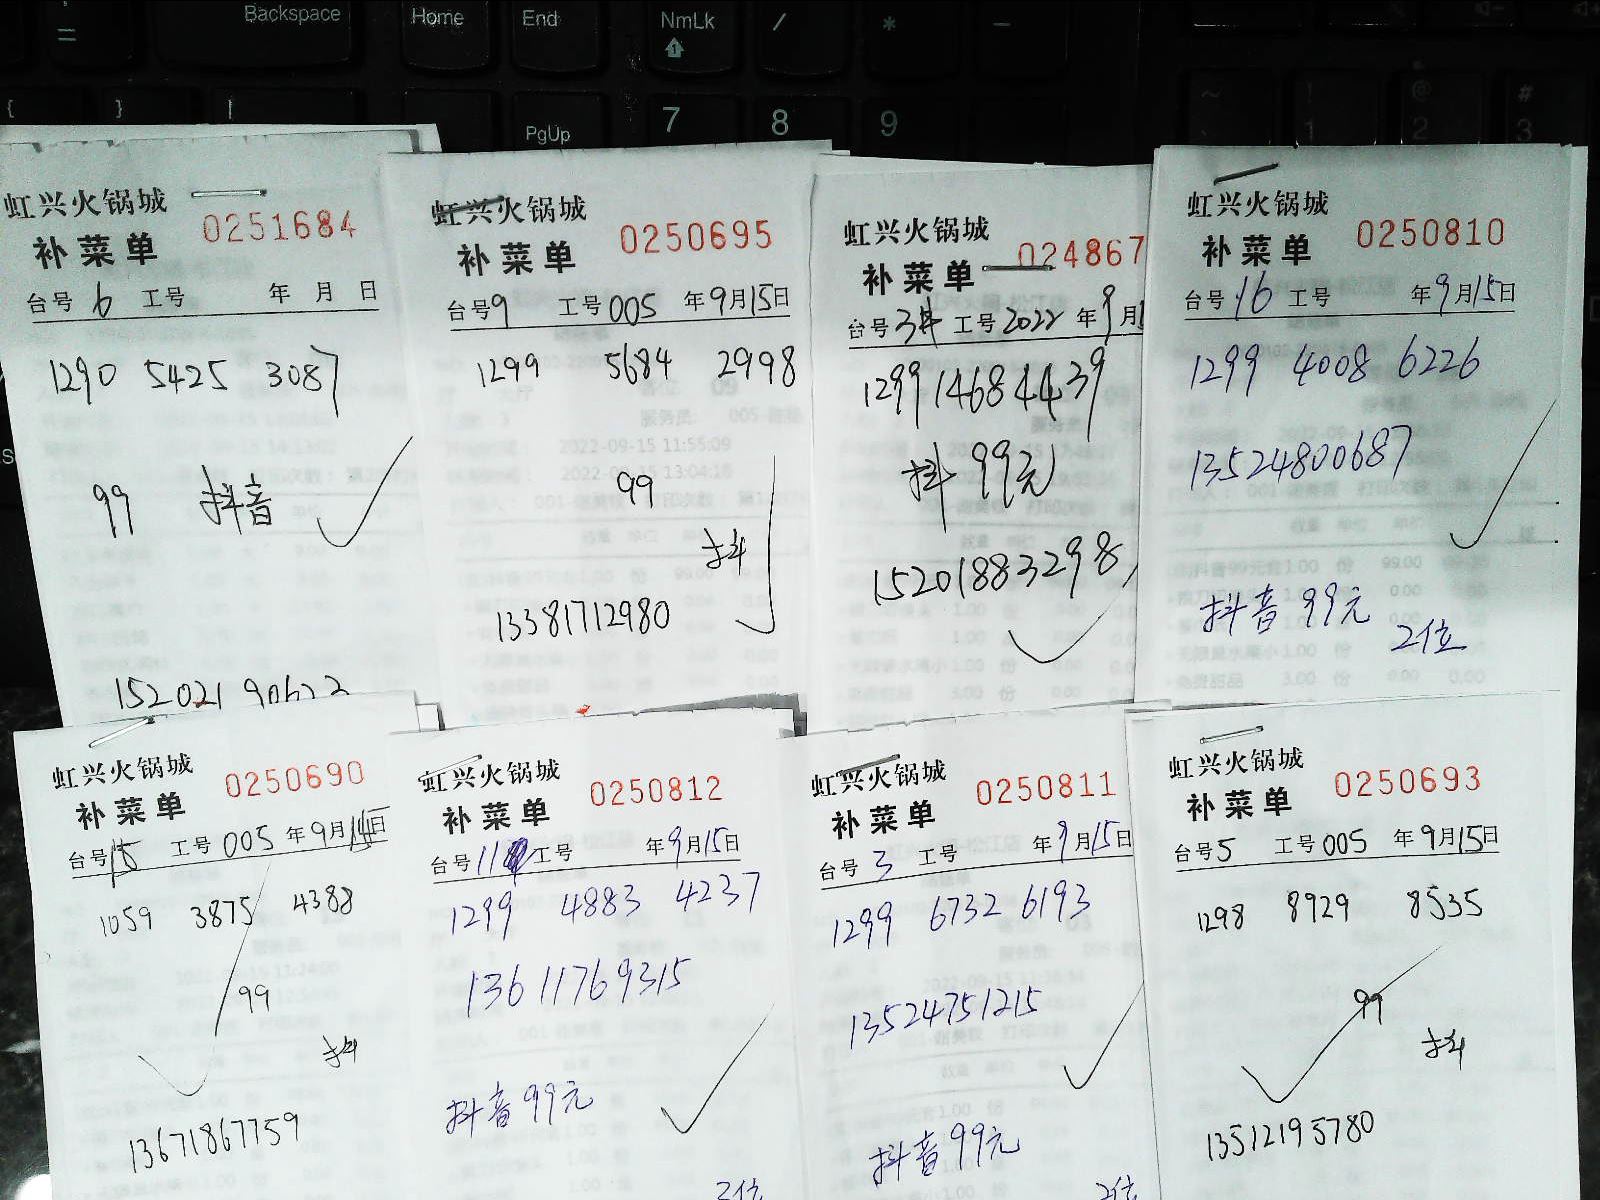 Backspace
Home
End
NmLk
/
*
-
=
{
}
PgUp
7
8
9
虹兴火锅城
0251684
补菜单
台号 6 工号 年 月 日
1290 5425 3087
99 抖音
虹兴火锅城
0250695
补菜单
台号 9 工号 005 年 9月15日
1299 5684 2998
99
抖
13381712980
虹兴火锅城
024867
补菜单
工号 2022 年 9月1
129914684439
抖 99元
15201883298
虹兴火锅城
0250810
补菜单
台号 16 工号 年 9月15日
1299 4008 6226
13524800687
抖音 99元
2位
虹兴火锅城
0250690
补菜单
台号 15 工号 005 年 9月14日
1059 3875 4388
99
抖
13671867759
虹兴火锅城
0250812
补菜单
台号 11 工号 年 9月15日
1299 4883 4237
13611769315
抖音 99元
3位
虹兴火锅城
0250811
补菜单
台号 3 工号 年 9月15日
1299 6732 6193
13524751215
抖音 99元
2位
虹兴火锅城
0250693
补菜单
台号 5 工号 005 年 9月15日
1298 8929 8535
99
抖
13512195780